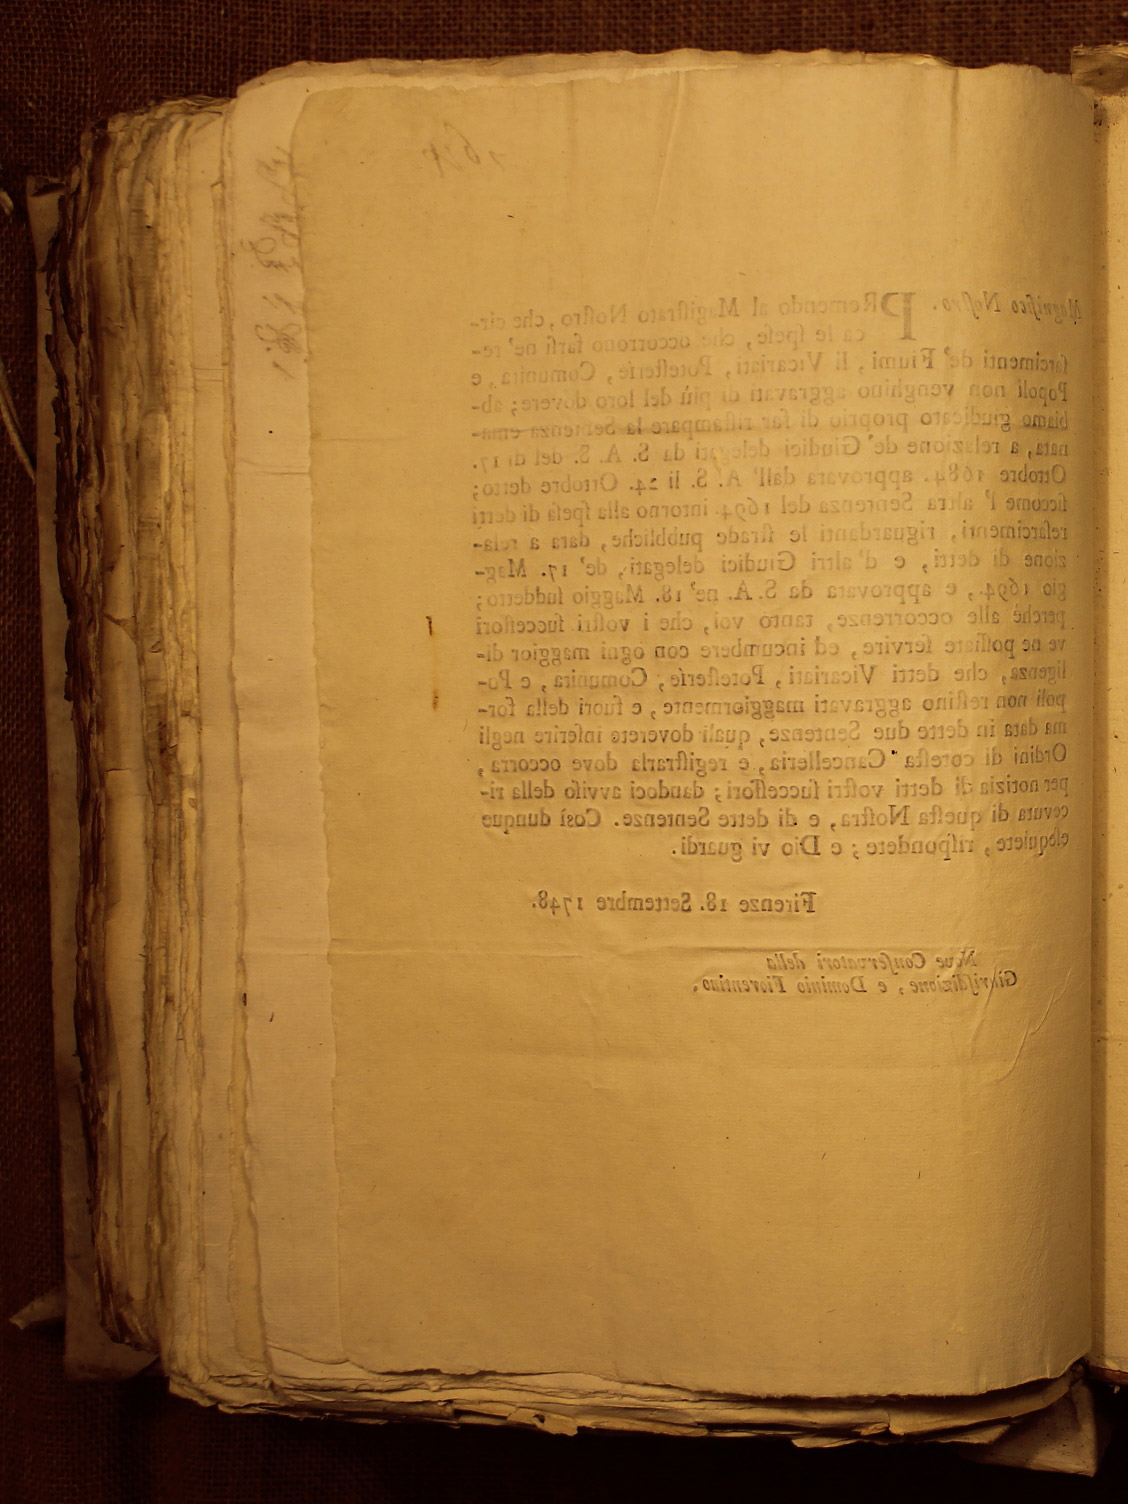 Magnifico Noſtro. PRemendo al Magiſtrato Noſtro, che cir-
ca le ſpeſe, che occorrono farſi ne' re-
ſarcimenti de' Fiumi, li Vicariati, Poteſterie, Comunita, e
Popoli non venghino aggravati di più del loro dovere; ab-
biamo giudicato proprio di far riſtampare la Sentenza ema-
nata, a relazione de' Giudici delegati da S. A. S. del di 17.
Ottobre 1684. approvata dall' A. S. li 24. Ottobre detto;
ſiccome l' altra Sentenza del 1694. intorno alla ſpeſa di detti
reſarcimenti, riguardanti le ſtrade pubbliche, data a rela-
zione di detti, e d' altri Giudici delegati, de' 17. Mag-
gio 1694., e approvata da S. A. ne' 18. Maggio ſuddetto;
perchè alle occorrenze, tanto voi, che i voſtri ſucceſſori
ve ne poſſiate ſervire, ed incumbere con ogni maggior di-
ligenza, che detti Vicariati, Poteſterie, Comunita, e Po-
poli non reſtino aggravati maggiormente, e fuori della for-
ma data in dette due Sentenze, quali doverete inferire negli
Ordini di coteſta Cancelleria, e regiſtrarla dove occorra,
per notizia di detti voſtri ſucceſſori; dandoci avviſo della ri-
cevuta di queſta Noſtra, e di dette Sentenze. Così dunque
eſequiete, riſpondete; e Dio vi guardi.
Firenze 18. Settembre 1748.
Nove Conſervatori della
Giuriſdizione, e Dominio Fiorentino.